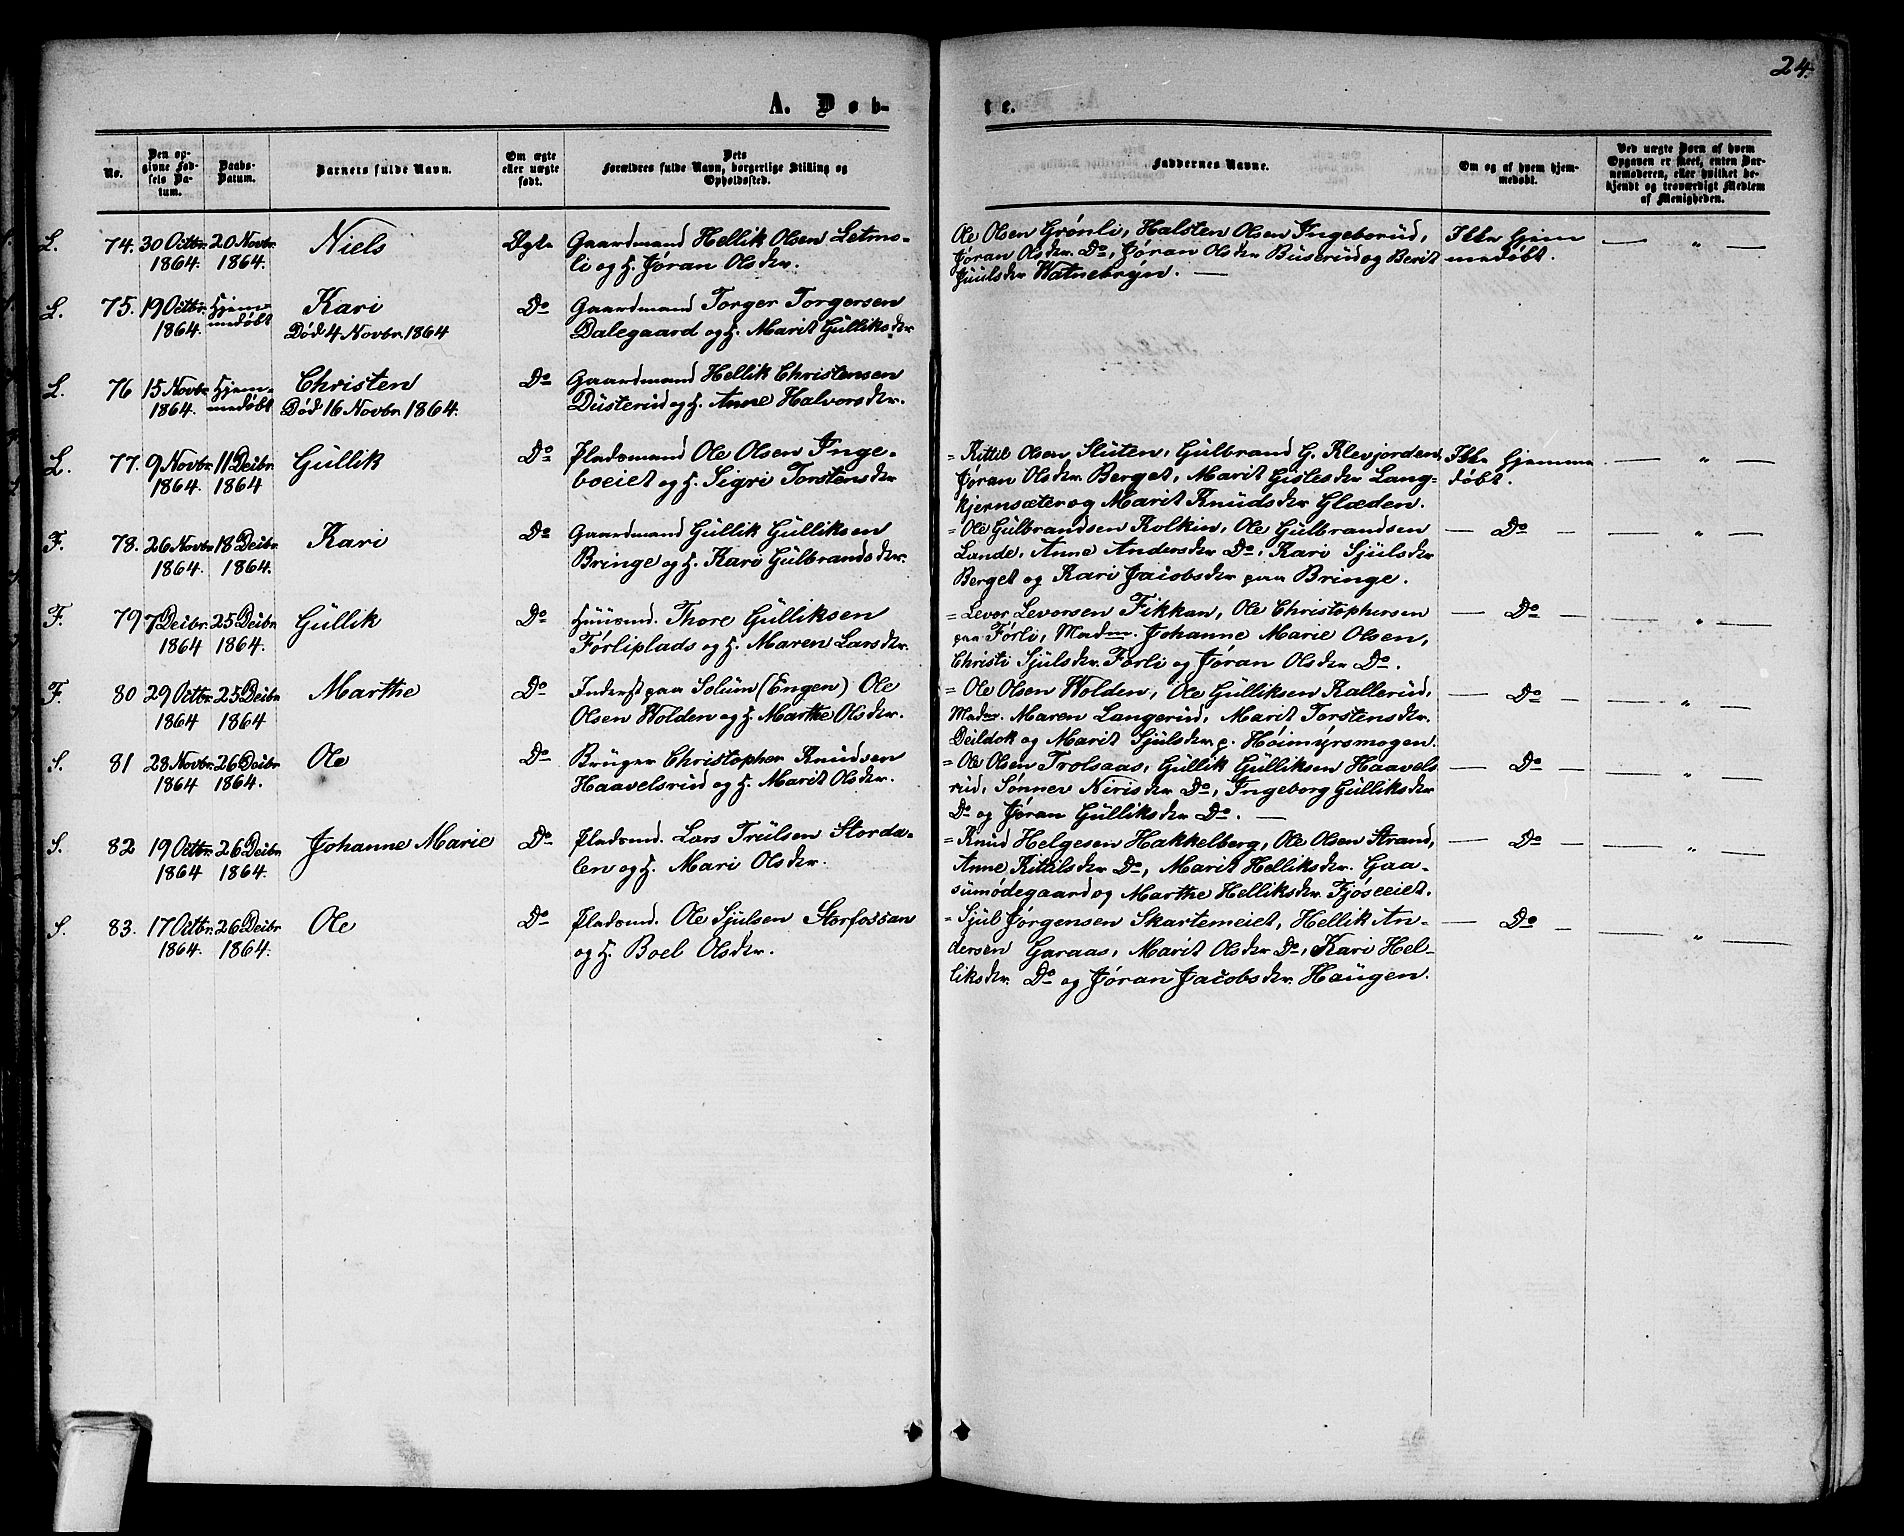 24.
A. Døb-
te.
No.
Den op-
givne Fød-
sels Da-
tum.
Daabs-
Datum.
Barnets fulde Navn.
Om ægte
eller uægte
født.
Dets
Forældres fulde Navn, borgerlige Stilling og
Opholdssted.
Faddernes Navne.
Om og af hvem hjem-
medøbt.
Ved uægte Børn af hvem
Opgaven er skeet, enten Bar-
nemoderen, eller hvilket be-
kjendt og troværdigt Medlem
af Menigheden.
L. 74. 30 Octbr. 1864. 20 Novbr. 1864. Niels Ægte
Gaardmand Hellik Olsen Letmo-
li og H. Jøran Olsdtr.
Ole Olsen Grønli, Halsten Olsen Ingeborüd,
Jøran Olsdtr. Do, Jøran Olsdtr Büserüd og Berit
Jüülsdtr Watnebryn. —
Ikke hjem
medøbt. — " —
L. 75. 19 Octbr. 1864. Hjem-
medøbt Kari
Død 4 Novbr. 1864 Do
Gaardmand Torger Torgersen
Dalegaard og H. Marit Gülliksdtr
L. 76 15 Novbr. 1864. Hjem-
medøbt Christen
Død 16 Novbr. 1864. Do
Gaardmand Hellik Christensen
Düsterüd og H. Anne Halvorsdtr.
L. 77. 9 Novbr. 1864. 11 Decbr. 1864 Güllik Do
Pladsmand Ole Olsen Inge-
boeiet og H. Sigri Torstensdtr
= Kittil Olsen Slüten, Gülbrand G. Klevjorden,
Jøran Olsdtr Berget, Marit Gislesdtr Lang-
kjernsæter og Marit Knüdsdtr Glæden.
Ikke hjemme
døbt. — " —
F. 78. 26 Novbr. 1864. 18 Decbr. 1864. Kari Do
Gaardmand Güllik Gülliksen
Bringe og H. Kari Gülbrandsdtr.
= Ole Gülbrandsen Kolkin, Ole Gülbrandsen
Lande, Anne Andersdtr Do, Kari Sjülsdtr
Berget og Kari Jacobsdtr paa Bringe.
— Do — — " —
F. 79. 7 Decbr. 1864 25 Decbr. 1864. Güllik Do
Hüüsmd. Thore Gülliksen
Førliplads og H. Maren Larsdtr.
= Levor Levorsen Fikkan, Ole Christophersen
paa Førli, Madme. Johanne Marie Olsen,
Christi Sjülsdtr. Førli og Jøran Olsdtr Do.
— Do — — " —
F. 80 29 Octbr. 1864 25 Decbr. 1864 Marthe Do
Inderst paa Solüm (Engen) Ole
Olsen Wolden og H. Marthe Olsdtr.
= Ole Olsen Wolden, Ole Gülliksen Kallerüd,
Madme. Maren Langerüd, Marit Torstensdtr.
Deildok og Marit Sjülsdtr p. Høimyrsmogen.
— Do — — " —
S. 81 28 Novbr. 1864 26 Decbr. 1864. Ole Do
Brüger Christopher Knüdsen
Haavelsrüd og H. Marit Olsdtr.
= Ole Olsen Trolsaas, Güllik Gülliksen Haavels
rüd, Sønnev Nirisdtr Do, Ingeborg Gülliksdtr
Do og Jøran Gülliksdtr Do. —
— Do — — " —
S. 82 19 Octbr. 1864 26 Decbr. 1864. Johanne Marie Do
Pladsmd. Lars Trülsen Storda-
len og H. Mari Olsdtr.
= Knüd Helgesen Hakkelberg, Ole Olsen Strand,
Anne Kittilsdtr Do, Marit Helliksdtr. Gaa-
sümødegaard og Marthe Helliksdtr. Fjøseeiet.
— Do — — " —
S. 83. 17 Octbr. 1864. 26 Decbr. 1864. Ole Do
Pladsmd. Ole Sjülsen Storfossan
og H. Boel Olsdtr.
= Sjül Jørgensen Skartemeiet, Hellik An-
dersen Garaas, Marit Olsdtr Do, Kari Hel-
liksdtr. Do og Jøran Jacobsdtr. Haügen.
— Do — — " —